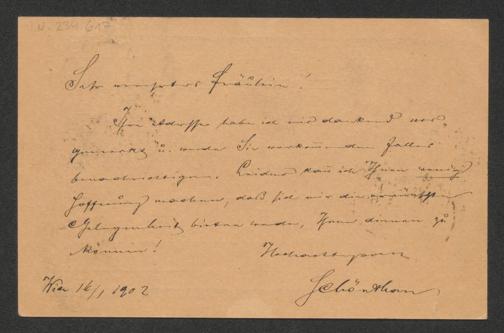 I.N. 234.617
Sehr verehrtes Fräulein!
Ihre Adresse habe ich mir dankend vor-
gemerkt u. werde Sie vorkommenden Falles
benachrichtigen. Leider kann ich Ihnen wenig
Hoffnung machen, daß sich mir die erwünschte
Gelegenheit bieten werde, Ihnen dienen zu
können!
Hochachtungsvoll
Schönthan
Wien 16/1 1902